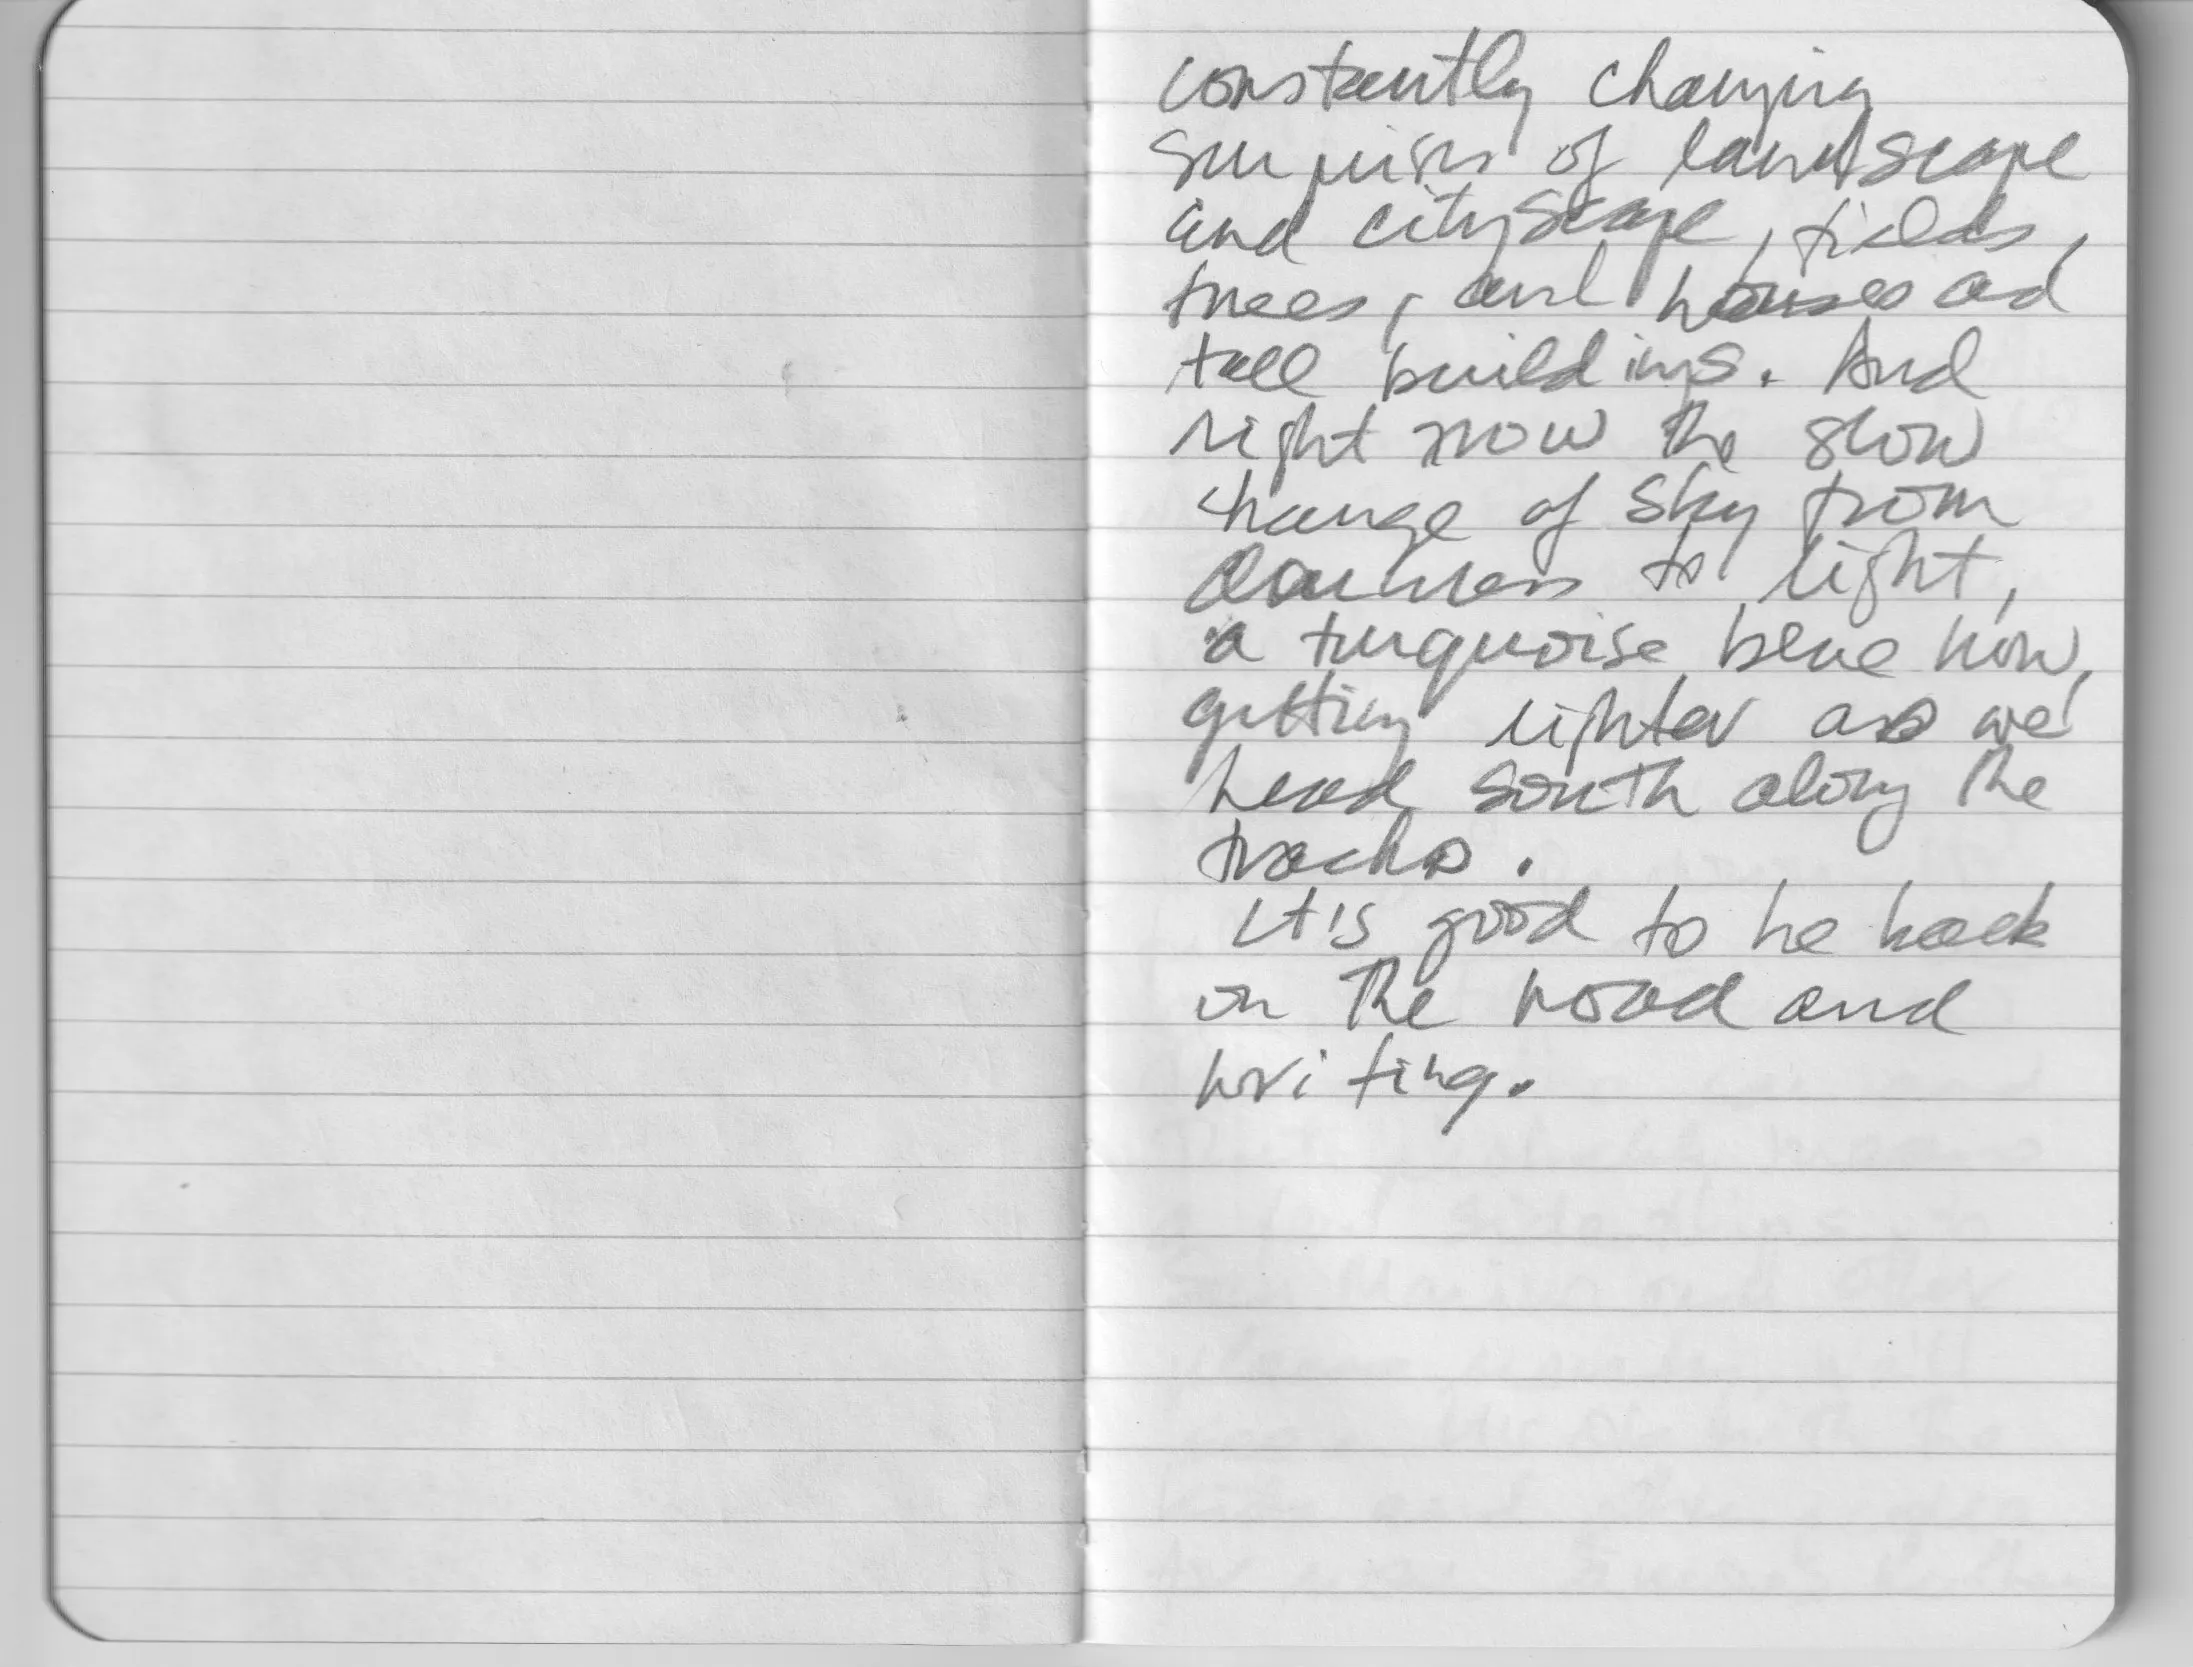 constantly changing
surprises of landscape
and cityscape, fields,
trees, and houses and
tall buildings. And
right now the slow
change of sky from
darkness to light,
a turquoise blue now,
getting lighter as we
head south along the
tracks.
It's good to be back
on the road and
writing.